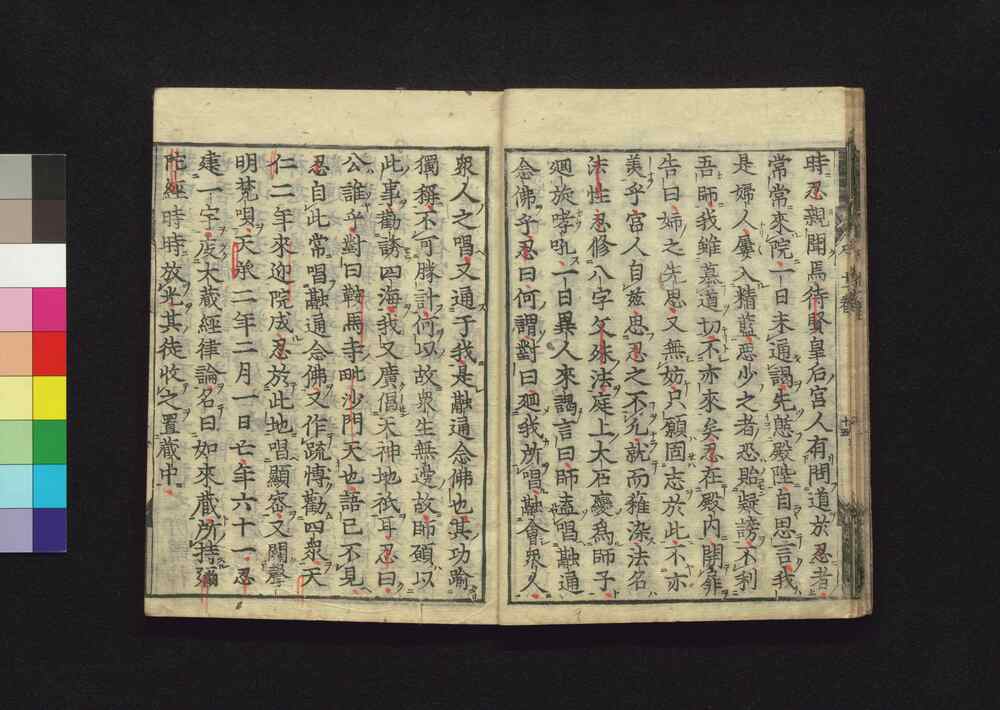 時忍親聞焉待賢皇后宮人有問道於忍者
常常來院一日未通謁先憩殿陛自思言我
是婦人屢入精藍惡少之者恐貽疑謗不利
吾師我雖慕道切不亦來矣忍在殿內開扉
告曰婦之先思又無妨戸願固志於此不亦
美乎宮人自茲思忍之不凡就而薙染法名
法性忍修八字文殊法庭上大石變為師子
廻旋哮吼一日異人來謁言曰師盍唱融通
念佛乎忍曰何謂對曰廻我所唱融會眾人
眾人之唱又通于我是融通念佛也其功喻
獨稱不可勝計何以故眾生無邊故師願以
此事勸誘四海我又廣倡天神地祇耳忍曰
公誰乎對曰鞍馬寺毗沙門天也語已不見
忍自此常唱融通念佛又作䟽博勸四眾天
仁二年來迎院成忍於此地唱顯密又闢聲
明梵唄天承二年二月一日亡年六十一忍
連一字
大藏經律論名曰如來藏所持彌
陀經時時放光其徒收之置藏中
十五